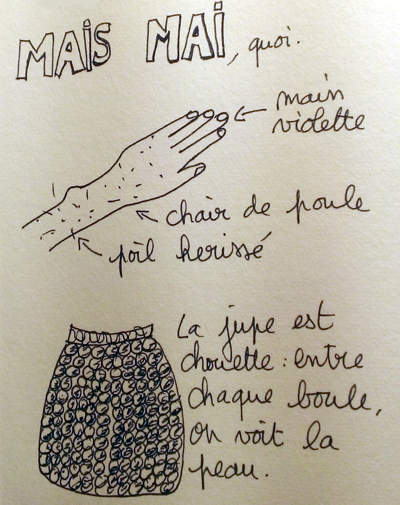 MAIS MAI, quoi.
main
violette
chair de poule
poil herissé
La jupe est
chouette : entre
chaque boule,
on voit la
peau.